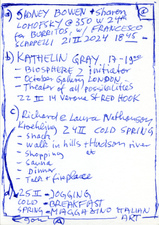 a) SIDNEY BOWEN + Sharon
LOMOFSKY @ 350 W 24th
for BURRITOS, W/ FRANCESCO
SCARPELLI 21 II 2024 1845
b) KATHELIN GRAY, 17-19:00
- BIOSPHERE 2 initiator
- October Gallery LONDON -
- Theater of all possibilities
22 II 14 Verona St RED HOOK
c) Richard & Laura Nathanson
24 II COLD SPRING
- walk in hills + Hudson river
- Shopping at
- Sauna
- Dinner
- Talk + fireplace
d) 25 II - JOGGING
COLD - BREAKFAST
SPRING - MAGGAZINO ITALIAN
ART